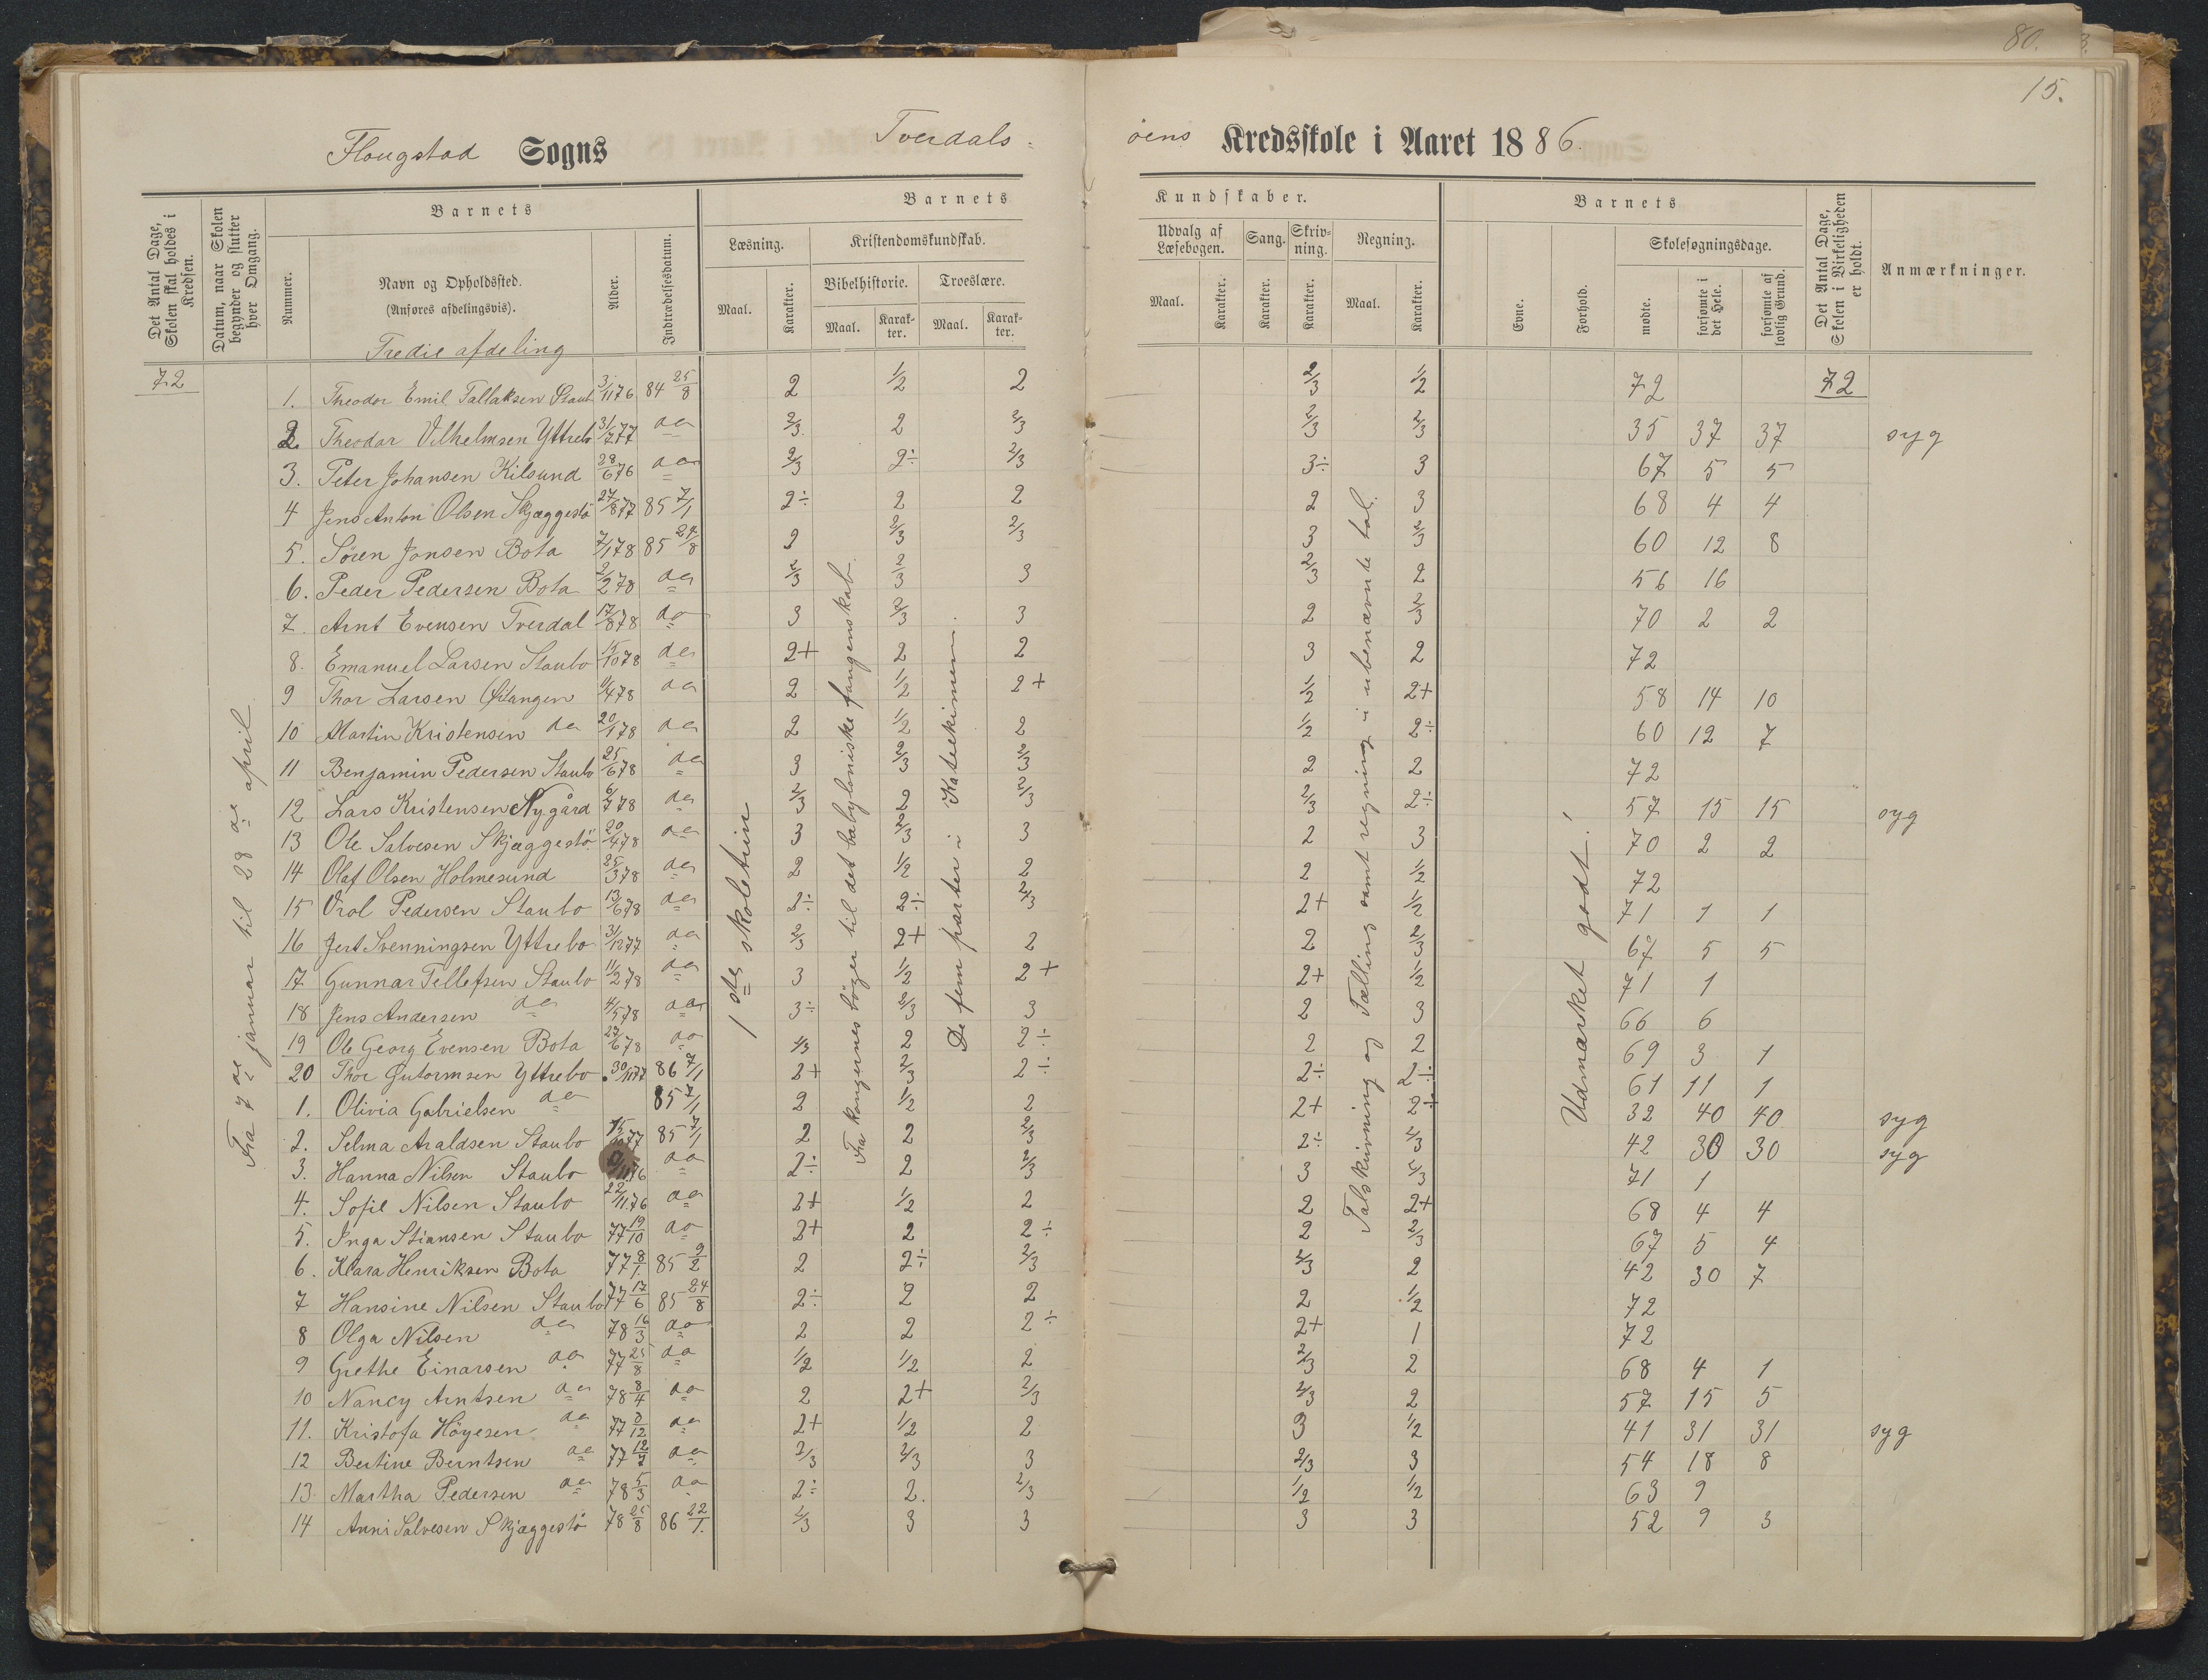 80.
15.
Flougstad Sogns Tverdals-
öens Kredsskole i Aaret 1886.
Det Antal Dage, Skolen skal holdes i Kredsen.
Datum, naar Skolen begynder og slutter hver Omgang.
Barnets
Nummer.
Navn og Opholdssted.
(Anføres afdelingsvis).
Alder.
Indtrædelsesdatum.
Barnets
Læsning.
Maal.
Karakter.
Kristendomskundskab.
Bibelhistorie.
Maal.
Karakter.
Troeslære.
Maal.
Karakter.
Kundskaber.
Udvalg af Læsebogen.
Maal.
Karakter.
Sang.
Karakter.
Skrivning.
Karakter.
Regning.
Maal.
Karakter.
Barnets
Evne.
Forhold.
Skolesøgningsdage.
mødte.
forsømte i det Hele.
forsømte af lovlig Grund.
Det Antal Dage, Skolen i Virkeligheden er holdt.
Anmærkninger.
Tredie afdeling
72
Fra 7de januar til 28de april
1ste skoletrin
Fra kongernes böger til det babyloniske fangenskab.
De fem parter i Katekismen.
Talskrivning og Tælling samt regning i ubenævnte tal.
Udmærket godt!
1. Theodor Emil Tallaksen Staub 3/11 76 84 25/8 2 1/2 2 2/3 1/2 72 72
2. Theodor Vilhelmsen Yttrebö 31/7 77 do 2/3 2 2/3 2/3 2/3 35 37 37 syg
3. Peter Johansen Kilsund 28/6 76 do 2/3 2÷ 2/3 3÷ 3 67 5 5
4 Jens Anton Olsen Skjæggestö 27/8 77 85 7/1 2÷ 2 2 2 3 68 4 4
5. Sören Jonsen Bota 7/1 78 85 24/8 2 2/3 2/3 3 2/3 60 12 8
6. Peder Pedersen Bota 2/2 78 do 2/3 2/3 3 2/3 2 56 16
7. Arnt Evensen Tverdal 17/8 78 do 3 2/3 3 2 2/3 70 2 2
8. Emanuel Larsen Staubo 15/10 78 do 2+ 2 2 3 2 72
9 Thor Larsen Östangen 11/4 78 do 2 1/2 2+ 1/2 2+ 58 14 10
10 Martin Kristensen do 20/1 78 do 2 1/2 2 1/2 2÷ 60 12 7
11 Benjamin Pedersen Staubo 25/6 78 do 3 2/3 2/3 2 2 72
12 Lars Kristensen Nygård 6/7 78 do 2/3 2 2/3 2/3 2÷ 57 15 15 syg
13 Ole Salvesen Skjæggestö 20/4 78 do 3 2/3 3 2 3 70 2 2
14 Olaf Olsen Holmesund 25/3 78 do 2 1/2 2 2 1/2 72
15 Pedersen Staubo 13/6 78 do 2÷ 2÷ 2/3 2+ 1/2 71 1 1
16 Svenningsen Yttrebo 31/12 77 do 2/3 2+ 2 2 2/3 67 5 5
17 Gunnar Tellefsen Staubo 11/2 78 do 3 1/2 2+ 2+ 1/2 71 1
18 Jens Andersen do 4/5 78 do 3÷ 2/3 3 2 3 66 6
19 Ole Georg Evensen Bota 27/6 78 do 2/3 2 2÷ 2 2 69 3 1
20 Thor Gutormsen Yttrebo 30/11 77 86 7/1 2+ 2/3 2÷ 2÷ 2÷ 61 11 1
1. Olivia Gabrielsen do 85 7/1 2 1/2 2 2+ 2+ 32 40 40 syg
2. Selma Araldsen Staubo 15/10 77 85 7/1 2 2 2/3 2÷ 2/3 42 30 30 syg
3. Hanna Nilsen Staubo /11 76 do 2÷ 2 2/3 3 2/3 71 1
4. Sofie Nilsen Staubo 22/11 76 do 2+ 1/2 2 2 2+ 68 4 4
5. Inga Stiansen Staubo 77 19/10 do 2+ 2 2÷ 2 2/3 67 5 4
6. Klara Henriksen Bota 77 8/1 85 9/2 2 2÷ 2/3 2/3 2 42 30 7
7 Hansine Nilsen Staubo 77 17/6 85 24/8 2÷ 2 2 2 1/2 72
8 Olga Nilsen do 78 16/3 do 2 2 2÷ 2+ 1 72
9 Grethe Einarsen do 77 25/8 do 1/2 1/2 2 2/3 2 68 4 1
10 Nancy Arntsen do 78 8/4 do 2 2+ 2/3 2/3 2 57 15 5
11. Kristofa Höyesen do 77 8/12 do 2+ 1/2 2 3 1/2 41 31 31 syg
12 Bertine Berntsen do 77 12/7 do 2/3 2/3 3 2/3 3 54 18 8
13. Martha Pedersen do 78 5/3 do 2÷ 2. 2/3 1/2 1/2 63 9
14 Anni Salvesen Skjæggestö 78 25/8 86 22/1 2/3 3 3 3 3 52 9 3